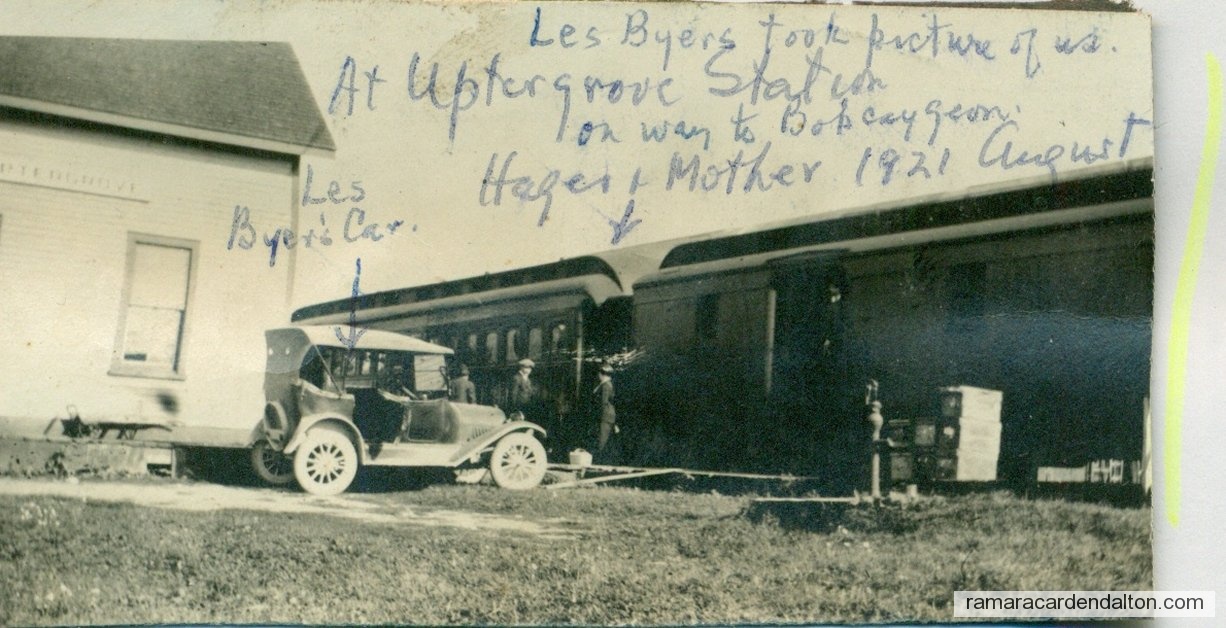 Les Byers took picture of us.
At Uptergrove Station
on way to Bobcaygeon.
Hager + Mother 1921 August
Les
Byer's Car.
PTERGROVE
ramaracardendalton.com